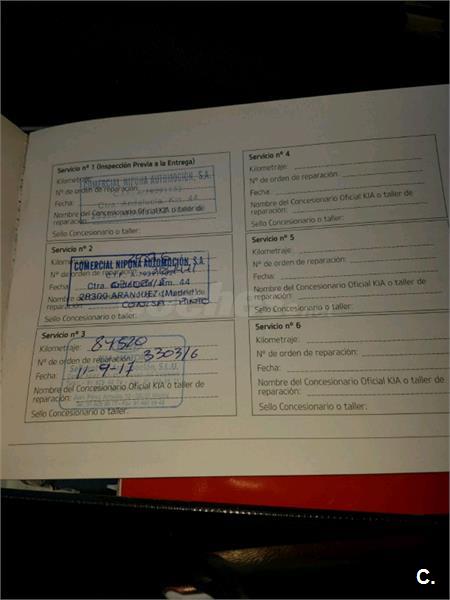 Servicio nº 1 (Inspección Previa a la Entrega)
Kilometraje:
COMERCIAL NIPONA AUTOMOCIÓN, S.A.
Nº de orden de reparación:
Fecha:
Ctra. Andalucía, Km. 44
Nombre del Concesionario Oficial KIA o taller de
reparación:
Sello Concesionario o taller:
Servicio nº 2
Kilometraje:
COMERCIAL NIPONA AUTOMOCIÓN, S.A.
Nº de orden de
Fecha:
Ctra. Andalucía, Km. 44
28300 ARANJUEZ (Madrid)
reparación:
Sello Concesionario o taller:
Servicio nº 3
Kilometraje: 84520
Nº de orden de reparación: 3303/6
Fecha: 11-9-17
Nombre del Concesionario Oficial KIA o taller de
reparación:
Sello Concesionario o taller:
Servicio nº 4
Kilometraje:
Nº de orden de reparación:
Fecha:
Nombre del Concesionario Oficial KIA o taller de
reparación:
Sello Concesionario o taller:
Servicio nº 5
Kilometraje:
Nº de orden de reparación:
Fecha:
Nombre del Concesionario Oficial KIA o taller de
reparación:
Sello Concesionario o taller:
Servicio nº 6
Kilometraje:
Nº de orden de reparación:
Fecha:
Nombre del Concesionario Oficial KIA o taller de
reparación:
Sello Concesionario o taller:
C.